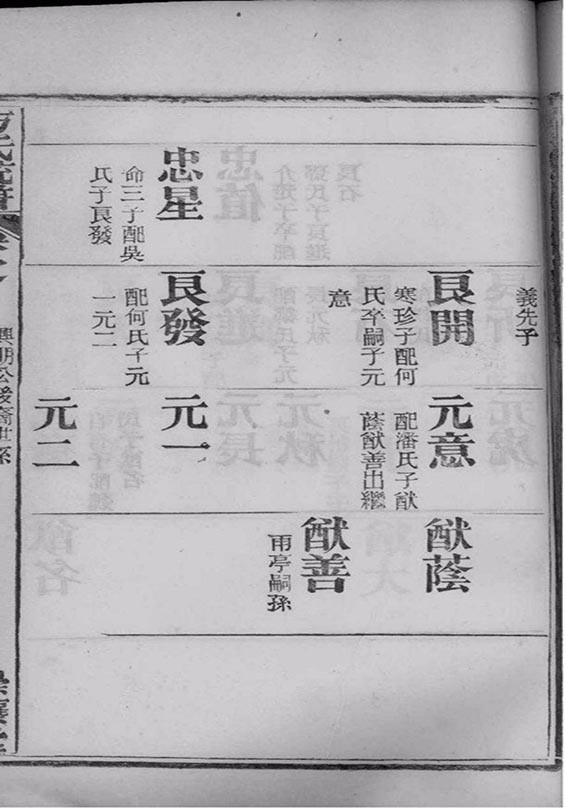 忠星
命三子配吳
氏子良發
義先子
良開
寒珍子配何
氏卒嗣子元
意
良發
配何氏子元
一元二
元意
配潘氏子猷
蔭猷善出繼
元一
元二
猷蔭
猷善
亭嗣孫
氏統譜
公後裔世系